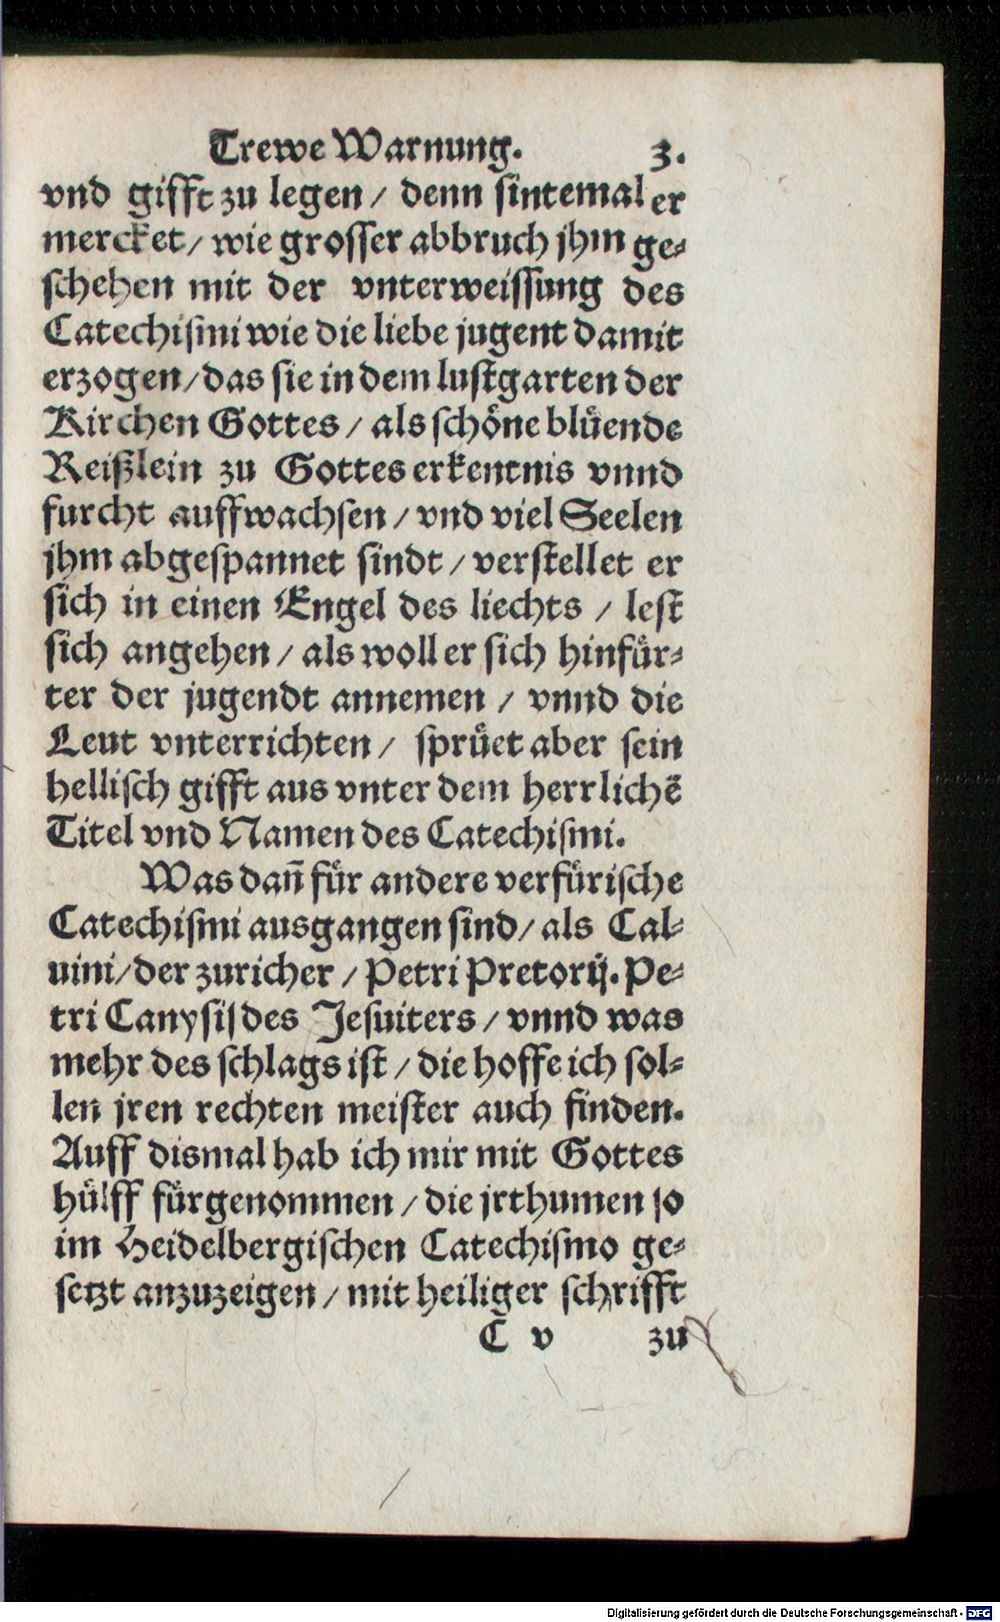 Trewe Warnung. 3.
vnd gifft zu legen / denn sintemal er
mercket / wie grosser abbruch jhm ge-
schehen mit der vnterweissung des
Catechismi wie die liebe jugent damit
erzogen / das sie in dem lustgarten der
Kirchen Gottes / als schöne blüende
Reißlein zu Gottes erkentnis vnnd
furcht auffwachsen / vnd viel Seelen
jhm abgespannet sindt / verstellet er
sich in einen Engel des liechts / lest
sich angehen / als woll er sich hinfür-
ter der jugendt annemen / vnnd die
Leut vnterrichten / sprüet aber sein
hellisch gifft aus vnter dem herrlichē
Titel vnd Namen des Catechismi.
Was dañ für andere verfürische
Catechismi ausgangen sind / als Cal-
uini / der zuricher / Petri Pretorij. Pe-
tri Canysij des Jesuiters / vnnd was
mehr des schlags ist / die hoffe ich sol-
len jren rechten meister auch finden.
Auff dismal hab ich mir mit Gottes
hülff fürgenommen / die jrthumen so
im Heidelbergischen Catechismo ge-
setzt anzuzeigen / mit heiliger schrifft
C v zu
Digitalisierung gefördert durch die Deutsche Forschungsgemeinschaft - DFG